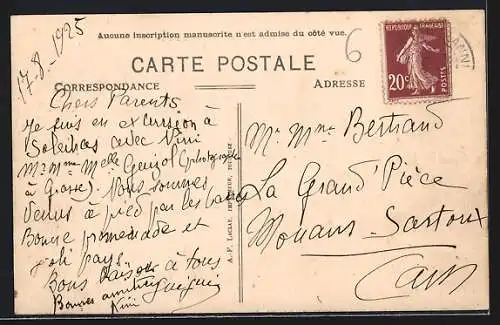 17-8-1925
Aucune inscription manuscrite n'est admise du côté vue.
6
CARTE POSTALE
CORRESPONDANCE
ADRESSE
REPUBLIQUE FRANÇAISE
20c
POSTES
Chers Parents
Je suis en excursion à
avec Nini
Mr Mme Melle
à Grasse). Nous sommes
Venus à pied par les
Bonne promenade et
joli pays.
Bons à tous
Bonnes amitiés
Nini
IMPRIMEUR, TOULOUSE
Mr Mme Bertrand
La Grand'Pièce
Mouans-Sartoux